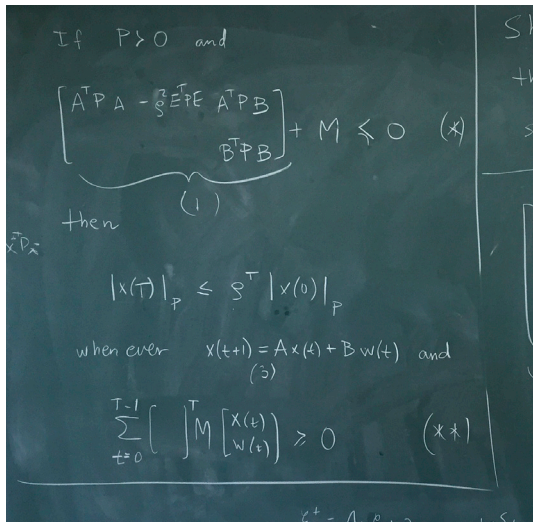 If P ≻ 0 and
[AᵀPA - ρ²EᵀPE AᵀPB
BᵀPB] + M ≼ 0 (*)
(1)
then
|x(T)|_P ≤ ρᵀ |x(0)|_P
when ever x(t+1) = A x(t) + B w(t) and
(3)
∑_{t=0}^{T-1} [ ]ᵀ M [x(t) w(t)] ≥ 0 (**)
Sh
th